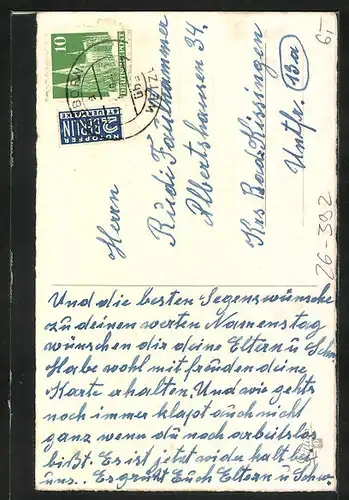 Herrn
Rudi Faulhammer
Albertshausen 34.
Krs Bad Kissingen
Untfr. 13a
6,-
26-392
10
NOTOPFER
2 BERLIN
STEUERMARKE
Und die besten Segenswünsche
zu deinen werten Namenstag
wünschen dir deine Eltern u Schw.
Habe wohl mit freuden deine
Karte erhalten. Und wie gehts
noch immer klapt auch nicht
ganz wenn du noch arbeitslos
bißt. Es ist jetzt wider kalt bei
uns. Es grüßt Euch Eltern u Schw.